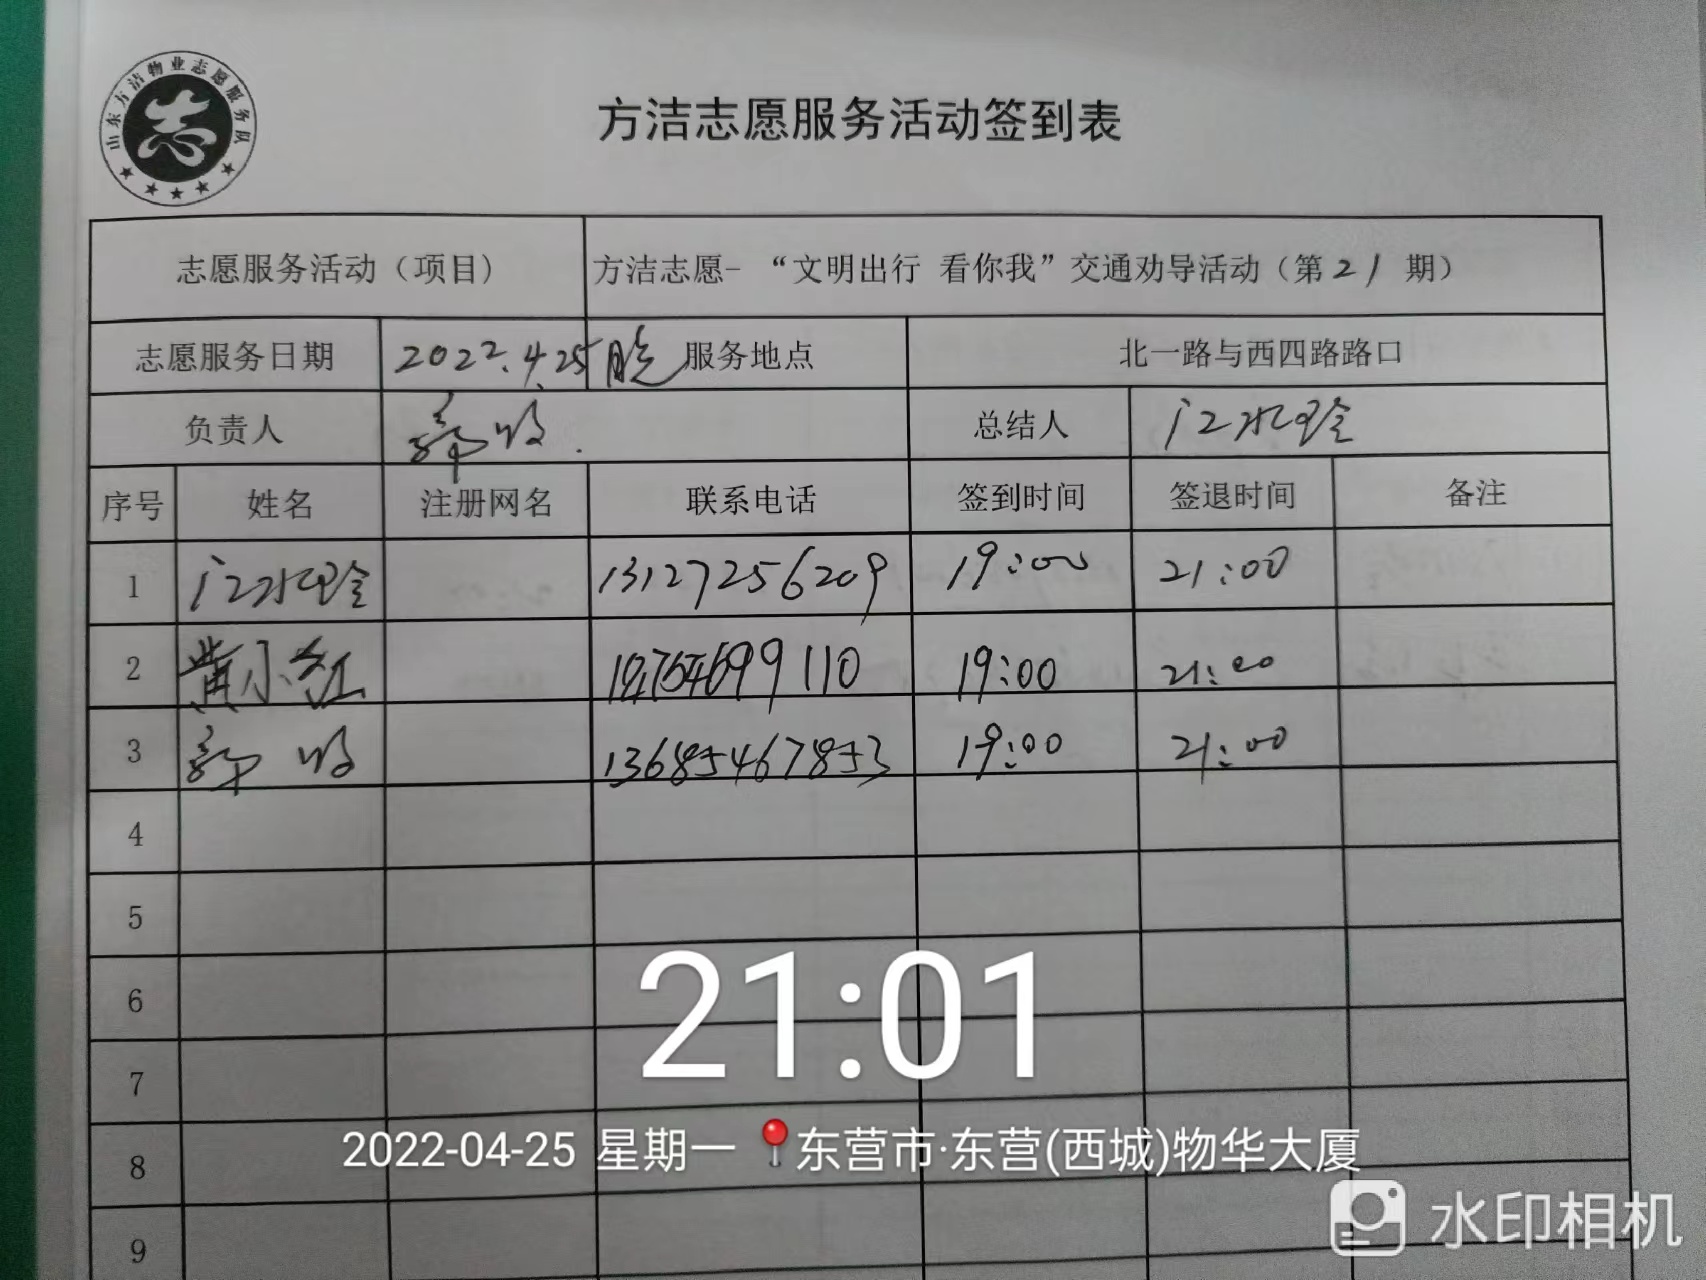 山东方洁物业志愿服务队
志
方洁志愿服务活动签到表
志愿服务活动（项目） 方洁志愿-“文明出行 看你我”交通劝导活动（第21期）
志愿服务日期 2022.4.25晚 服务地点 北一路与西四路路口
负责人 总结人 江水玲
序号 姓名 注册网名 联系电话 签到时间 签退时间 备注
1 江水玲 13127256209 19:00 21:00
2 黄小红 19:00 21:00
3 13685467853 19:00 21:00
4
5
6
7
8
9
21:01
2022-04-25 星期一 东营市·东营(西城)物华大厦
水印相机